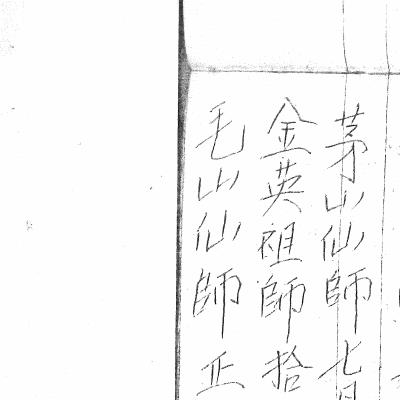 茅山仙師七月
金英祖師拾
毛山仙師正